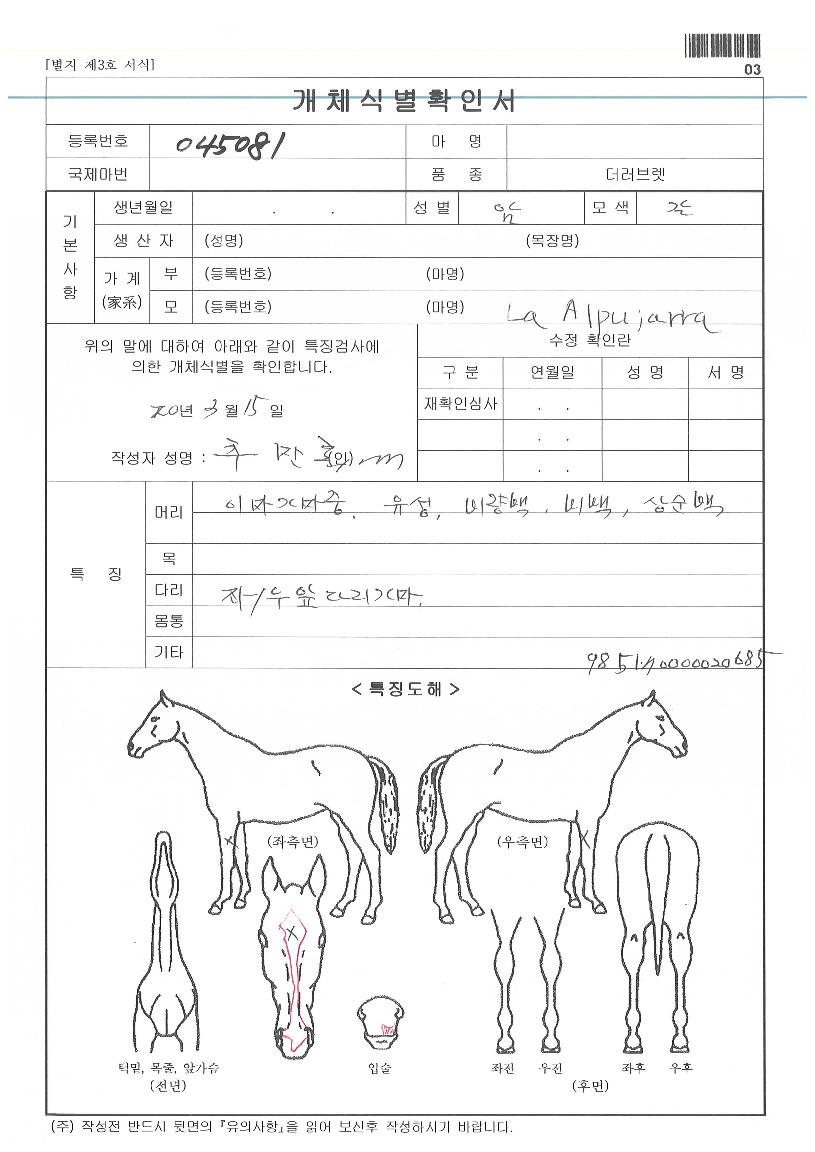 [별지 제3호 서식]
03
개체식별확인서
등록번호 045081 마 명
국제마번 품 종 더러브렛
기본사항
생년월일 . . 성 별 암 모 색 갈
생 산 자 (성명) (목장명)
가 계 (家系) 부 (등록번호) (마명)
모 (등록번호) (마명) La Alpujarra
위의 말에 대하여 아래와 같이 특징검사에
의한 개체식별을 확인합니다.
20년 3월 15일
작성자 성명 : (인)
수정 확인란
구 분 연월일 성 명 서 명
재확인심사 . .
. .
. .
특 징
머리 이마가마중. 유성, 비량백, 비백, 상순백
목
다리 좌/우 앞다리가마.
몸통
기타
0000020685
< 특징도해 >
(좌측면) (우측면)
턱밑, 목줄, 앞가슴 입술 좌전 우전 좌후 우후
(전면) (후면)
(주) 작성전 반드시 뒷면의 『유의사항』을 읽어 보신후 작성하시기 바랍니다.